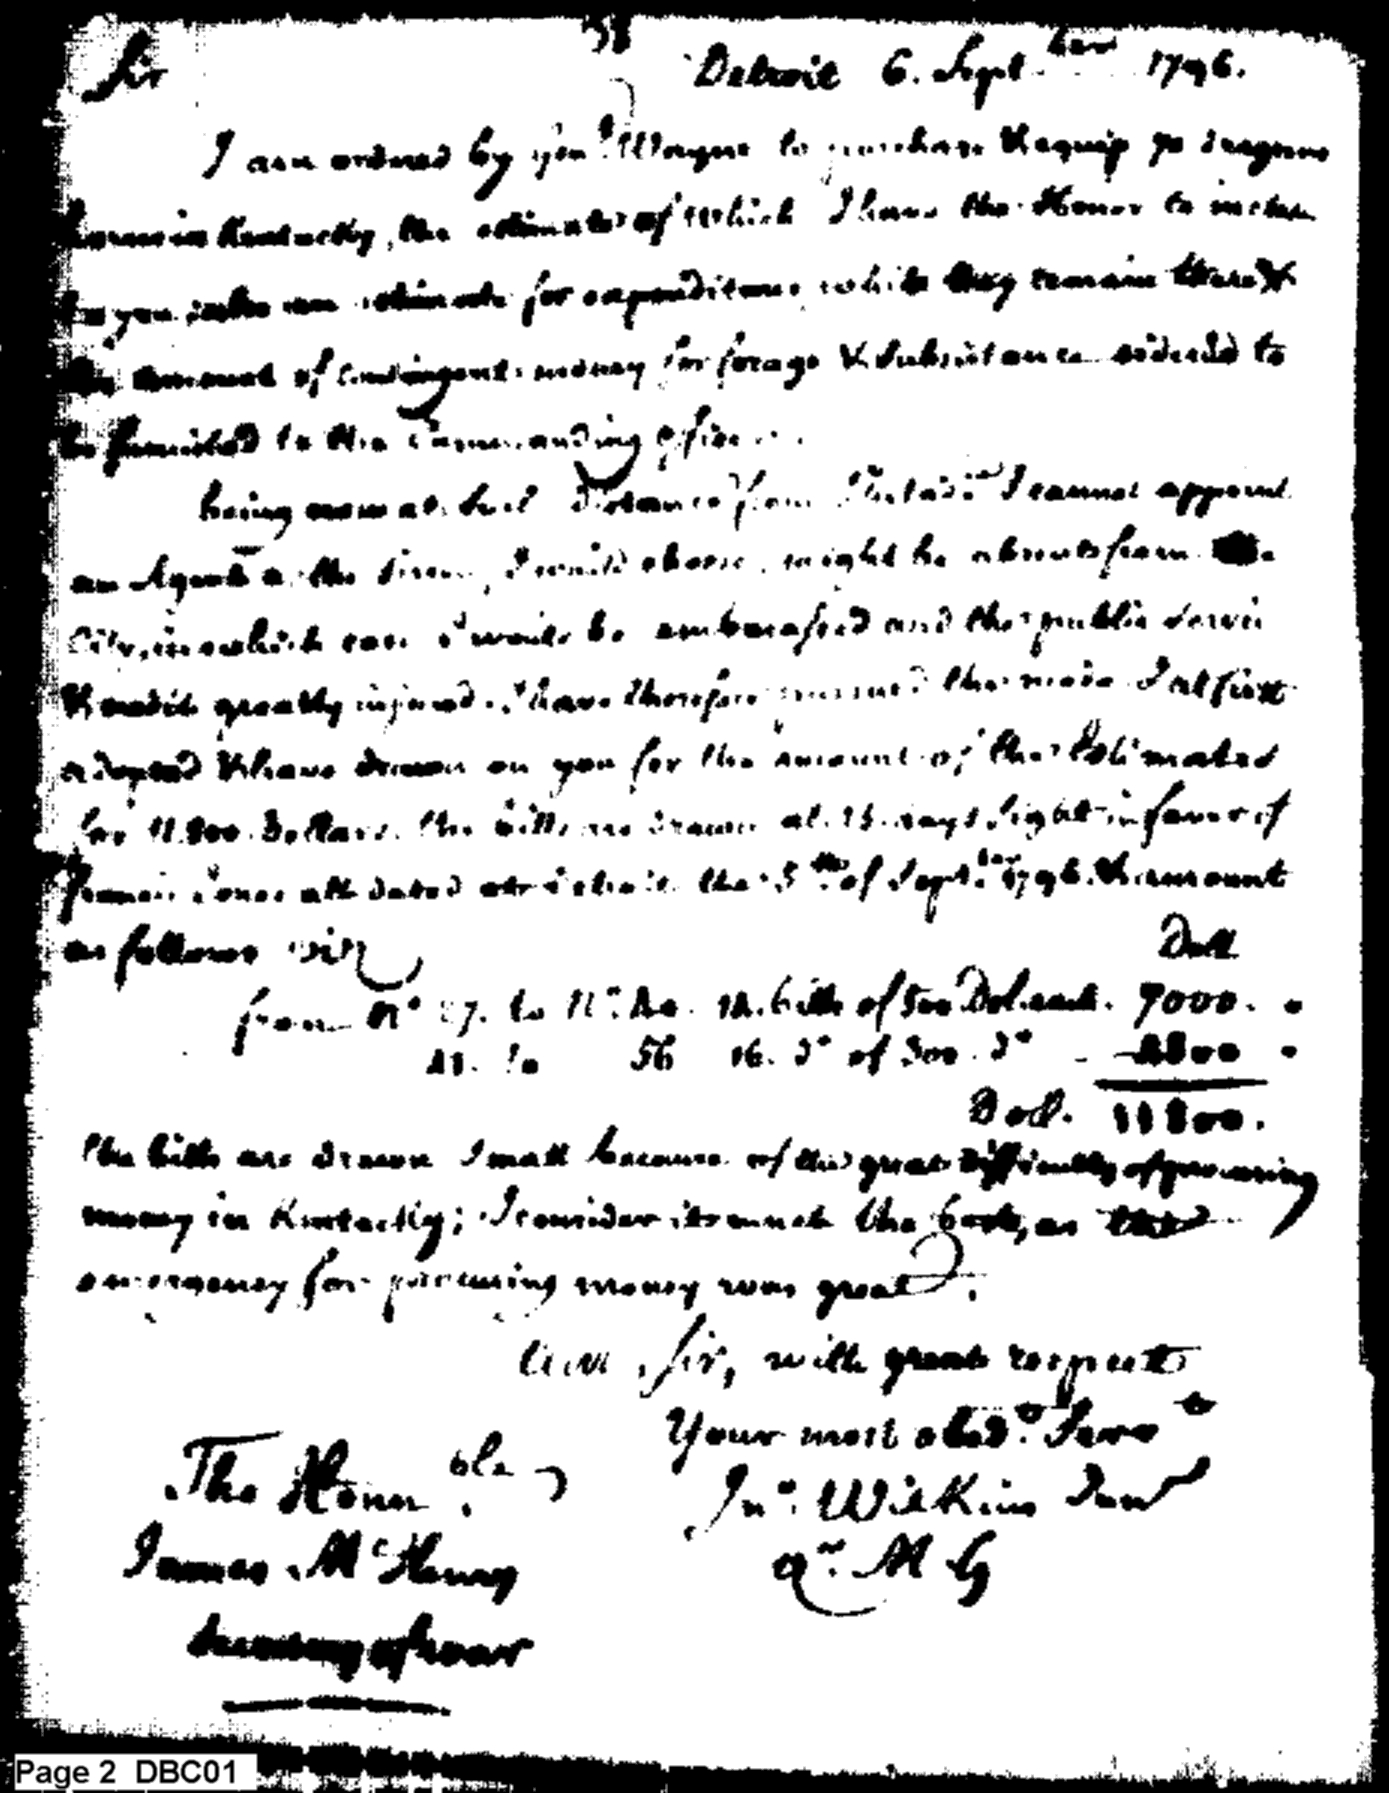 58
Sir Detroit 6. Sept.ber 1796.
I am ordered by Gen.l Wayne to purchase & equip 70 dragoon
horses in Kentucky, the estimate of which I have the Honor to inclose
to you, also an estimate for expenditures while they remain there &
the amount of Contingent money for forage & subsistance ordered to
be furnished to the Commanding officer.
being now at such distance from I cannot appoint
an Agent at the time, I would choose, might be absent from the
City, in which case I would be embarassed and the public service
& credit greatly injured. I have therefore pursued the mode I at first
adopted & have drawn on you for the amount of the Estimates
for 11.800 Dollars. the bills are drawn at 15 days sight in favor of
Jones all dated at Detroit the 5th of Sept.ber 1796. & amount
as follows viz
Doll
from No 27. to No. 40. 14. bills of 500 Dol. each. 7000.
41. to 56 16. do of 300. do 4800
Doll. 11800.
the bills are drawn small because of the great difficulty of procuring
money in Kentucky; I consider it much the best, as the
emergency for procuring money was great.
I am, Sir, with great respect
Your most obed.t Serv.t
The Honr.ble Jn.o Wilkins Junr
James McHenry Q.r M G
Secretary of War
Page 2 DBC01